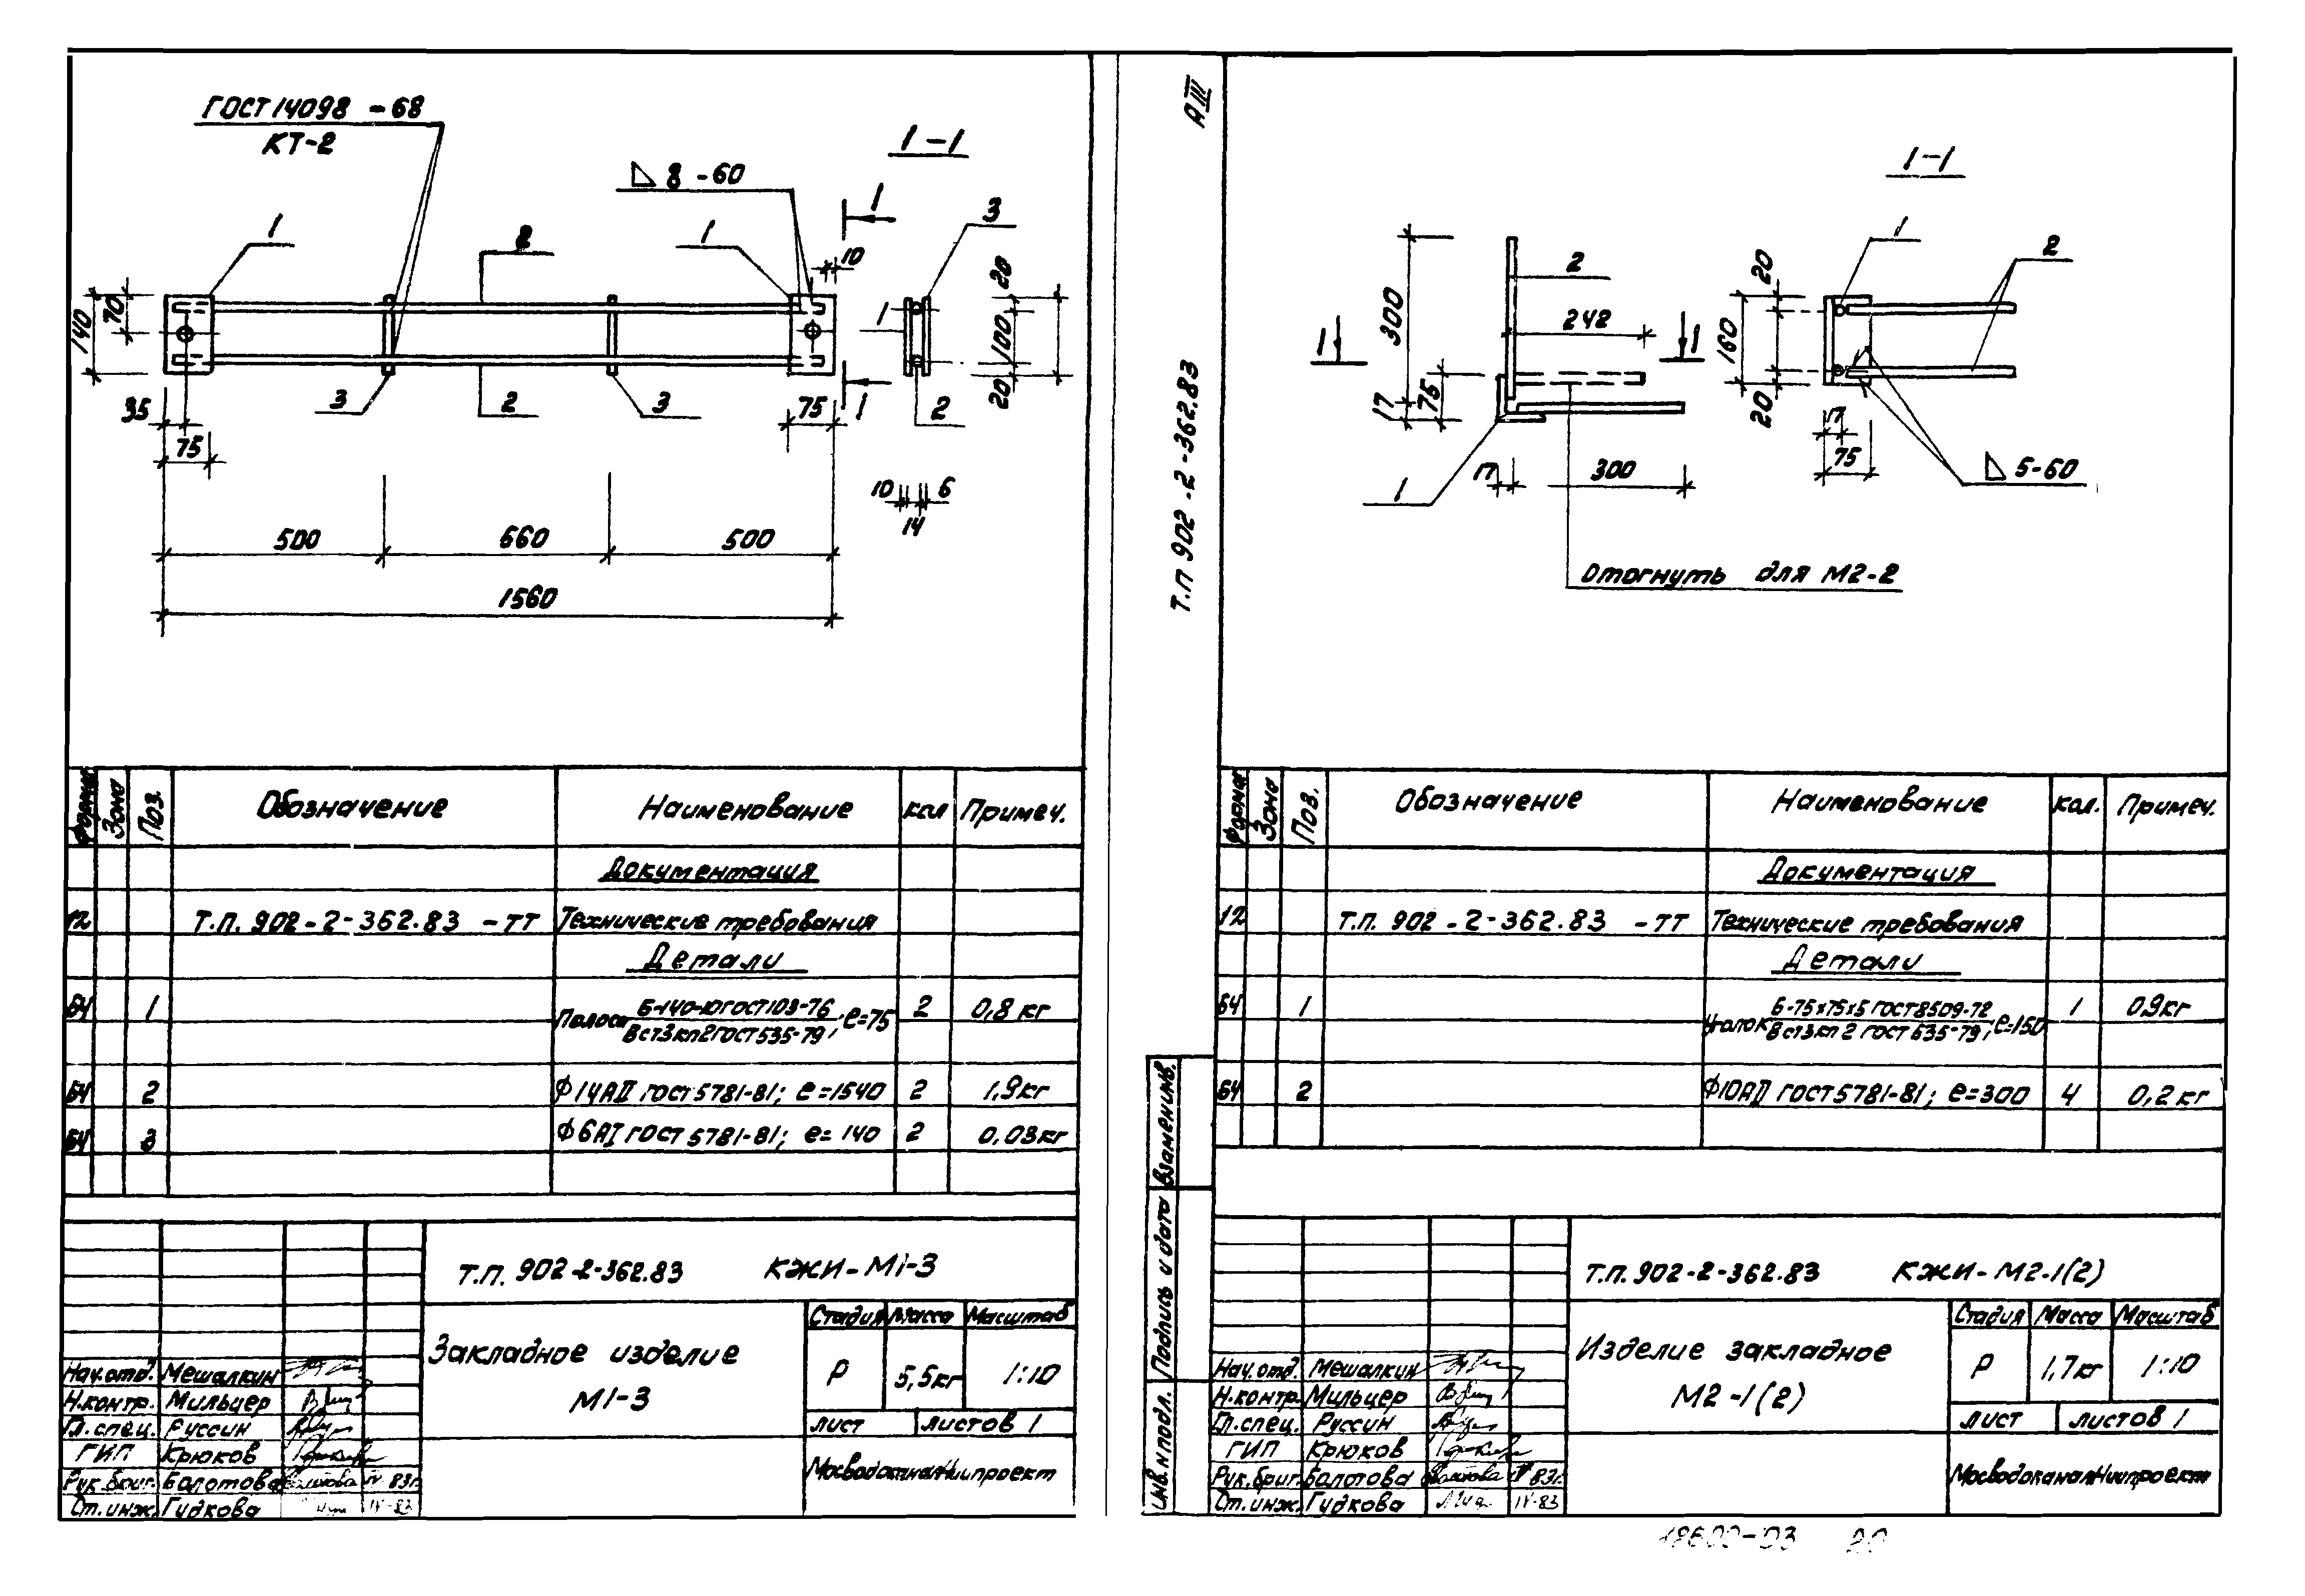 ГОСТ 14098 - 68
КТ-2
8 - 60
1 - 1
1
2
1
1
10
3
140
70
20
100
20
1
3
2
3
2
1
35
75
75
10
6
14
500
560
500
1560
Формат
Зона
Поз.
Обозначение
Наименование
кол
Примеч.
Документация
12
Т.П. 902-2-362.83 -ТТ
Технические требования
Детали
БЧ
1
Полоса Б-140-10 ГОСТ 103-76
Вст3кп2 ГОСТ 535-79, ℓ=75
2
0,8 кг
БЧ
2
Ф14АII ГОСТ 5781-81; ℓ=1540
2
1,9кг
БЧ
3
Ф6АI ГОСТ 5781-81; ℓ=140
2
0,03кг
Т.П. 902-2-362.83 КЖИ-М1-3
Закладное изделие
М1-3
Стадия
Масса
Масштаб
Р
5,5кг
1:10
лист
листов 1
МосводоканалНиипроект
Нач.отд. Мешалкин
Н.контр. Мильцер
Гл.спец. Руссин
ГИП Крюков
Рук.бриг. Болотова IV 83г.
Ст.инж. Гудкова IV-83
АIII
Т.П 902-2-362.83
1-1
300
17
75
2
242
1
1
1
17
300
Отогнуть для М2-2
1
2
20
160
20
17
75
5-60
Формат
Зона
Поз.
Обозначение
Наименование
кол.
Примеч.
Документация
12
Т.П. 902-2-362.83 -ТТ
Технические требования
Детали
БЧ
1
Уголок Б-75х75х5 ГОСТ 8509-72
Вст3кп2 ГОСТ 535-79; ℓ=150
1
0,9кг
БЧ
2
Ф10АII ГОСТ 5781-81; ℓ=300
4
0,2кг
Взамен инв.
Подпись и дата
Инв.Nподл.
Т.П. 902-2-362.83 КЖИ-М2-1(2)
Изделие закладное
М2-1(2)
Стадия
Масса
Масштаб
Р
1,7кг
1:10
лист
листов 1
МосводоканалНиипроект
Нач.отд. Мешалкин
Н.контр. Мильцер
Гл.спец. Руссин
ГИП Крюков
Рук.бриг. Болотова IV 83г.
Ст.инж. Гудкова IV-83
18600-03 20